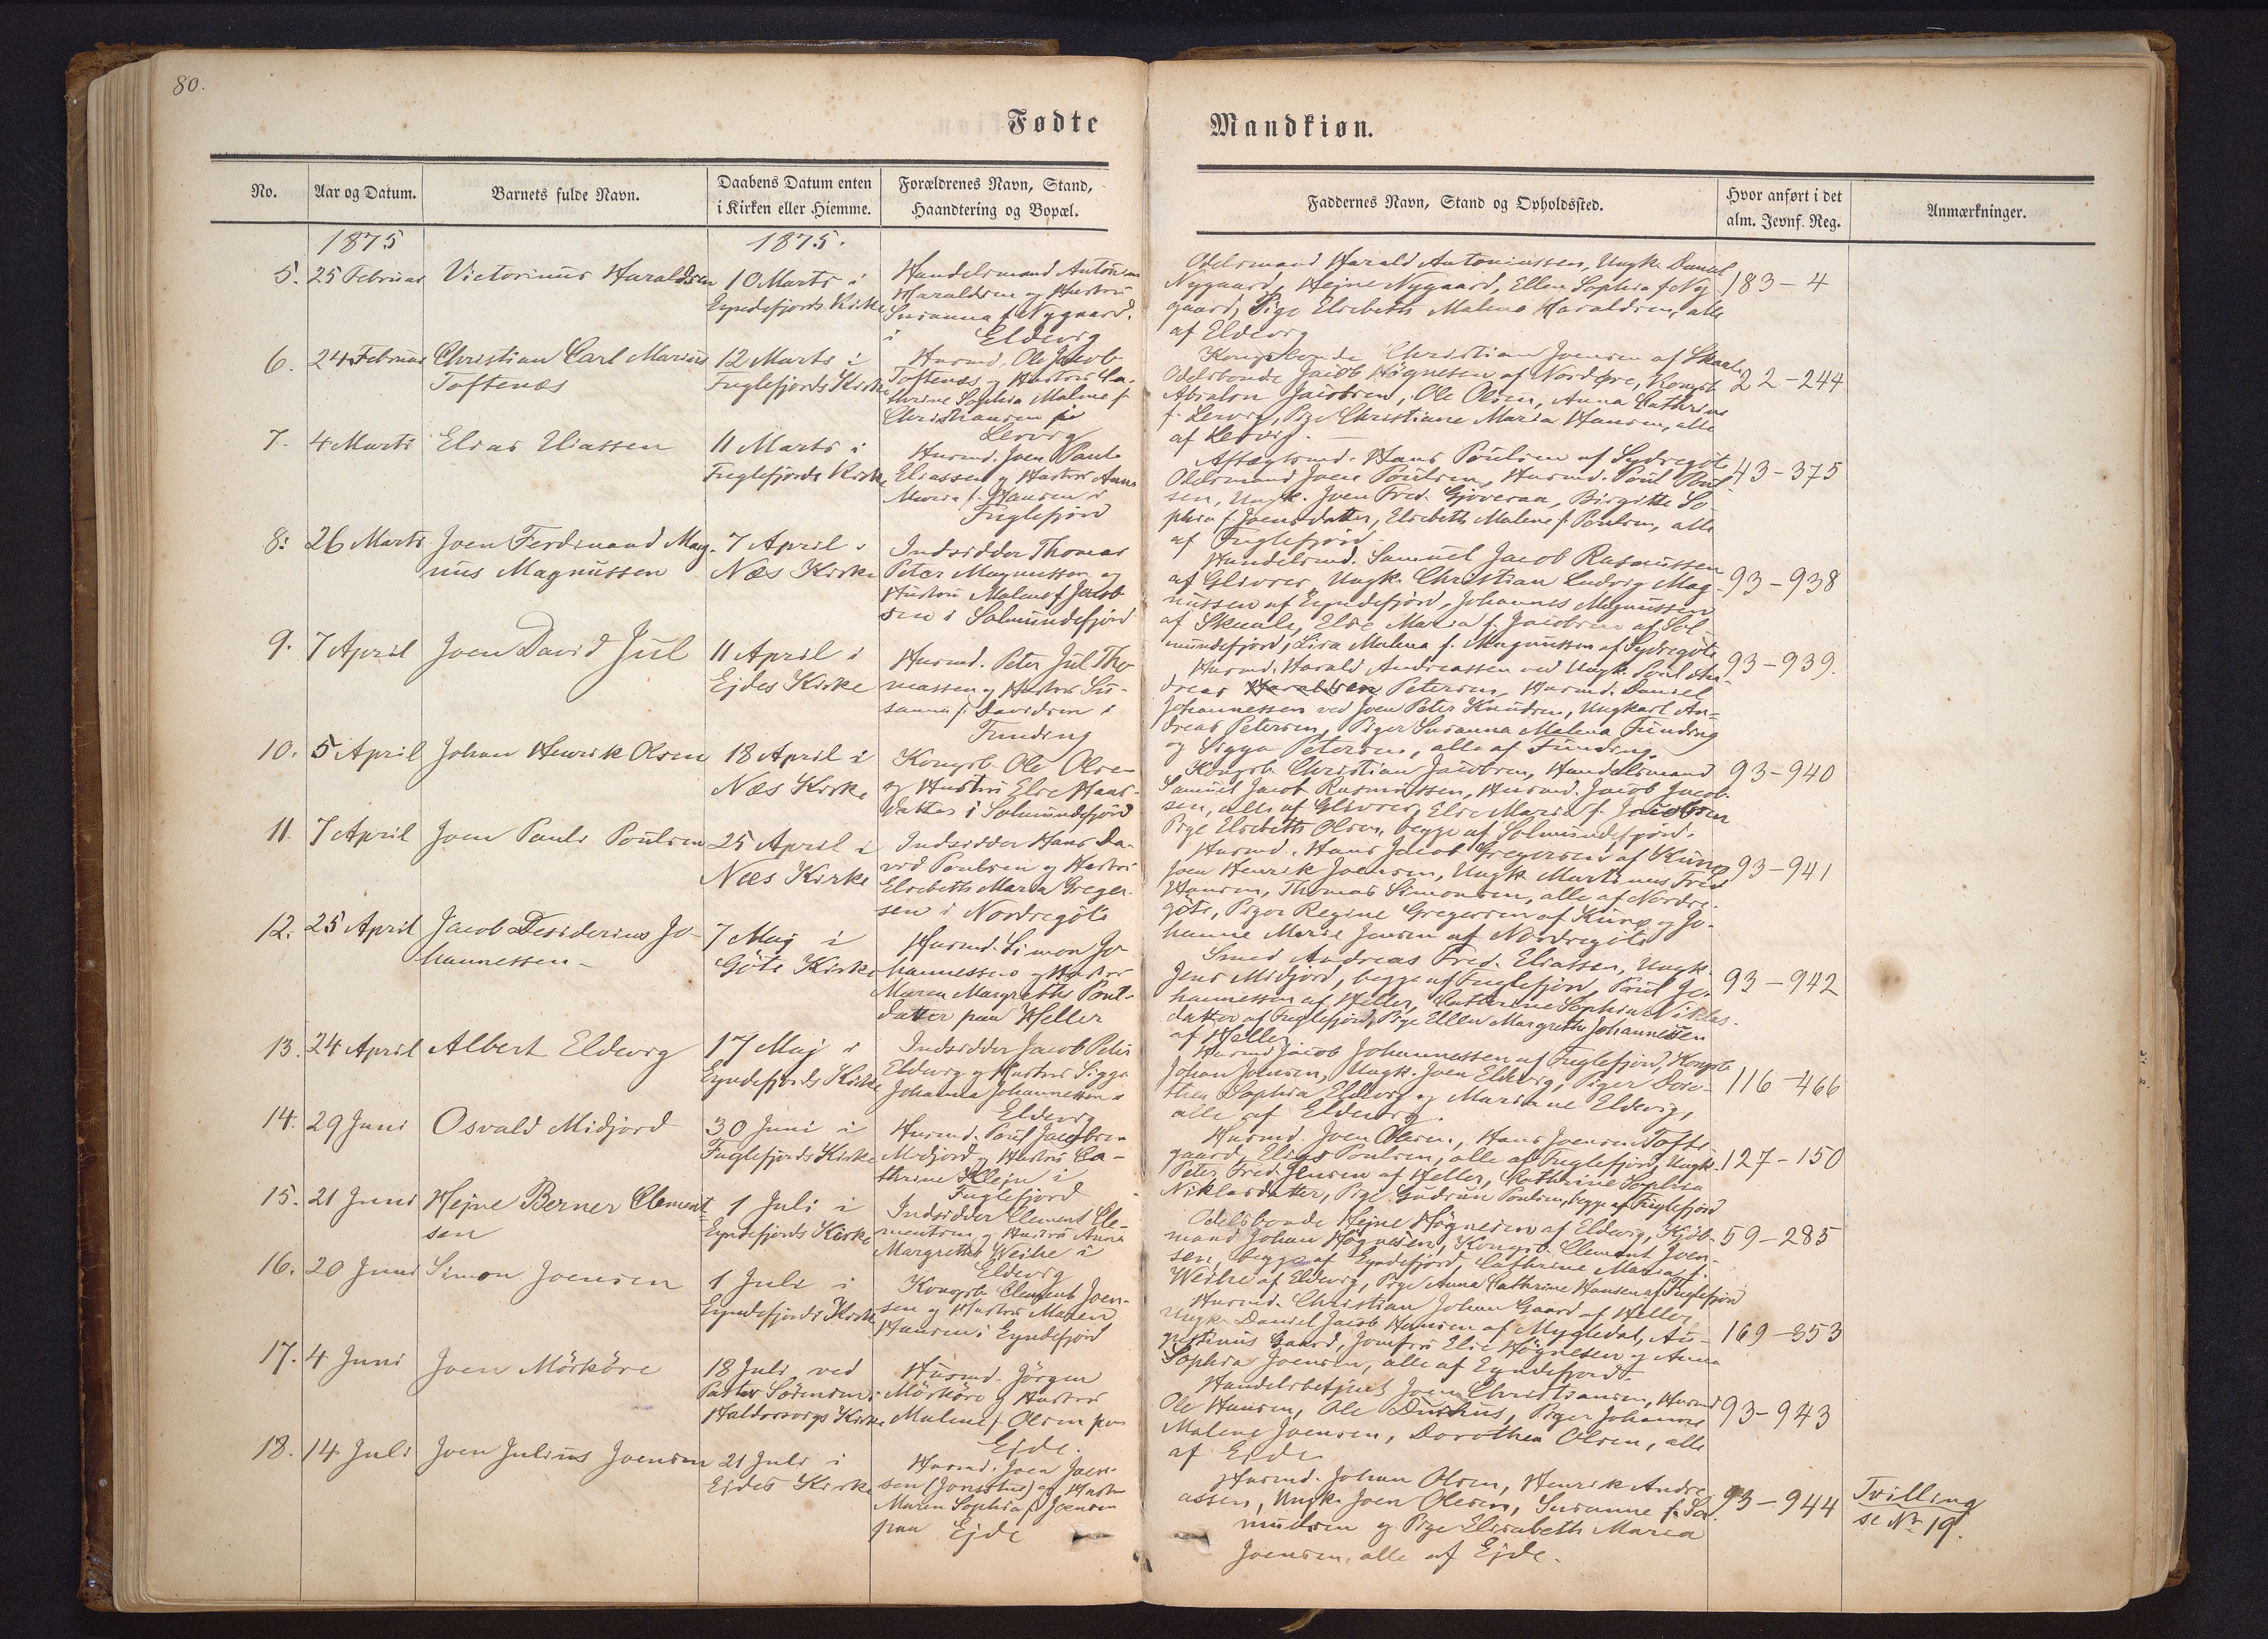 80.
Fødte
Mandkiøn.
No.
Aar og Datum.
Barnets fulde Navn.
Daabens Datum enten
i Kirken eller Hiemme.
Forældrenes Navn, Stand,
Haandtering og Bopæl.
Faddernes Navn, Stand og Opholdssted.
Hvor anført i det
alm. Jevnf. Reg.
Anmærkninger.
1875
1875.
5. 25 Februar Victorinus Haraldsen
10 Marts i
Eyndefjords Kirke
Handelsmand Antonius
Haraldsen og Hustru
Susanna f. Nygaard.
i Eldevig
Odelsmand Harald Antoniussen, Ungk. Daniel
Nygaard, Hejne Nygaard, Ellen Sophia f. Ny
gaard, Pige Elsebeth Malena Haraldsen, alle
af Eldevig
183-4
6. 24 Februar Christian Carl Marius
Toftenæs
12 Marts i
Fuglefjords Kirke
Husmd. Ole Jacob
Toftenæs og Hustru Ca-
thrine Sophia Malene f.
Christiansen i
Lervig
Kongsbonde Christian Joensen af Skaale,
Odelsbonde Jacob Høgnesen af Nordøre, Kongsb.
Absalon Jacobsen, Ole Olsen, Anna Cathrine
f. Lervig, Pige Christiane Maria Hansen, alle
af Lervig.
22-244
7. 4 Marts Elias Eliassen
11 Marts i
Fuglefjords Kirke
Husmd. Joen Paul
Eliassen og Hustru Anna
Maria f. Hansen i
Fuglefjord
Aftægtsmd. Hans Poulsen af Sydregöte
Odelsmand Joen Poulsen, Husmd. Poul Poul
sen, Ungk. Joen Fred. Gjoveraa, Birgitte So
phia f. Joensdatter, Elsebeth Malene f. Poulsen, alle
af Fuglefjord.
43-375
8. 26 Marts Joen Ferdinand Mag-
nus Magnussen
7 April i
Næs Kirke
Indsidder Thomas
Peter Magnussen og
Hustru Malene f. Jacob
sen i Solmundefjord
Handelsmd. Samuel Jacob Rasmussen
af Glivrer, Ungk. Christian Ludvig Mag-
nussen af Eyndefjord, Johannes Magnussen
af Skaale, Else Maria f. Jacobsen af Sol
mundefjord, Lisa Malena f. Magnussen af Sydregöte
93-938
9. 7 April Joen David Jul
11 April i
Ejdes Kirke
Husmd. Peter Jul Tho-
massen og Hustru Su-
sanna f. Davidsen i
Funding
Husmd. Harald Andreassen ved Ungk. Poul An-
dreas Petersen, Husmd. Daniel
Johannessen ved Joen Peter Knudsen, Ungkarl An-
dreas Petersen, Piger Susanna Malena Funding
og Sigga Petersen, alle af Funding.
93-939.
10. 5 April Johan Henrik Olsen
18 April i
Næs Kirke
Kongsb. Ole Olsen
og Hustru Else Hans-
datter i Solmundefjord
Kongsb. Christian Jacobsen, Handelsmand
Samuel Jacob Rasmussen, Husmd. Jacob Jacob-
sen, alle af Glivrer, Else Maria f. Jacobsen
Pige Elsebeth Olsen, begge af Solmundefjord.
93-940
11. 7 April Joen Pauli Poulsen
25 April i
Næs Kirke
Indsidder Hans Da-
vid Poulsen og Hustru
Elsebeth Maria Greger-
sen i Nordregöte
Husmd. Hans Jacob Gregersen af Kunø
Joen Henrik Joensen, Ungk. Martinus Fred
Hansen, Thomas Simonsen, alle af Nordre-
göte, Piger Regine Gregersen af Kunø og Jo-
hanne Marie Jensen af Nordregöte
93-941
12. 25 April Jacob Desiderius Jo-
hannessen-
7 Maj i
Göte Kirke
Husmd. Simon Jo
hannessen og Hustru
Maren Margrethe Poul-
datter paa Heller
Smed Andreas Fred. Eliassen, Ungk.
Jens Midjord, begge af Fuglefjord, Poul Jo-
hannessen af Heller, Cathrine Sophia Niklas-
datter af Fuglefjord, Pige Ellen Margrethe Johannessen
af Heller
93-942
13. 24 April Albert Eldevig
17 Maj i
Eyndefjords Kirke
Indsidder Jacob Peter
Eldevig og Hustru Sigga
Johanna Johannessen i
Eldevig
Husmd. Jacob Johannessen af Fuglefjord, Kongsb.
Johan Joensen, Ungk. Joen Eldevig, Piger Doro-
thea Sophia Eldevig og Marianne Eldevig,
alle af Eldevig.
116-466
14. 29 Juni Osvald Midjord
30 Juni i
Fuglefjords Kirke
Husmd. Poul Jacobsen
Midjord og Hustru Ca-
thrine Klejn i
Fuglefjord
Husmd. Joen Olesen, Hans Joensen Tofte
gaard, Elias Poulsen, alle af Fuglefjord, Ungk.
Peter Fred. Jensen af Heller, Cathrine Sophia
Niklasdatter, Pige Gudrun Poulsen, begge af Fuglefjord
127-150
15. 21 Juni Hejne Berner Clement-
sen
1 Juli i
Eyndefjords Kirke
Indsidder Clement Cle-
mentsen og Hustru Anna
Margrethe Weihe i
Eldevig
Odelsbonde Hejne Høgnesen af Eldevig, Kjøb-
mand Johan Høgnesen, Kongsb. Clement Joen
sen, begge af Eyndefjord, Cathrine Maria f.
Weihe af Eldevig, Pige Anna Cathrine Hansen af Fuglefjord
59-285
16. 20 Juni Simon Joensen
1 Juli i
Eyndefjords Kirke
Kongsb. Clement Joen-
sen og Hustru Maren
Hansen i Eyndefjord
Husmd. Christian Johan Gaard af Heller
Ungk. Daniel Jacob Hansen af Mygledal, Au-
gustinus Gaard, Jomfru Else Høgnesen og Anna
Sophia Joensen, alle af Eyndefjord.
169-353
17. 4 Juni Joen Mörköre
18 Juli ved
Pastor Sörensen i
Haldorsvigs Kirke
Husmd. Jörgen
Mörköre og Hustru
Malene f. Olsen paa
Ejde.
Handelsbetjent Joen Christiansen, Husmd
Ole Hansen, Ole Durhus, Piger Johanne
Malene Joensen, Dorothea Olsen, alle
af Ejde
93-943
18. 14 Juli Joen Julius Joensen
21 Juli i
Ejdes Kirke
Husmd. Joen Joen-
sen og Hustru
Maren Sophia f. Joensen
paa Ejde
Husmd. Johan Olsen, Henrik Andre
assen, Ungk. Joen Olesen, Susanne f. Sa-
muelsen og Pige Elisabeth Maria
Joensen, alle af Ejde.
93-944
Tvilling
se No 19.